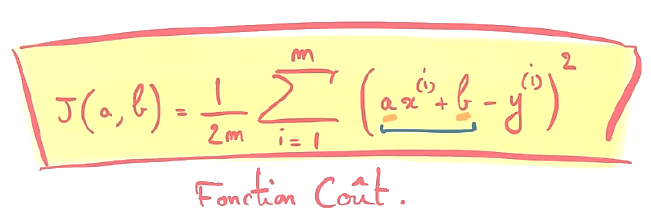 J(a, b) = \frac{1}{2m} \sum_{i=1}^{m} (a x^{(i)} + b - y^{(i)})^2
Fonction Coût.